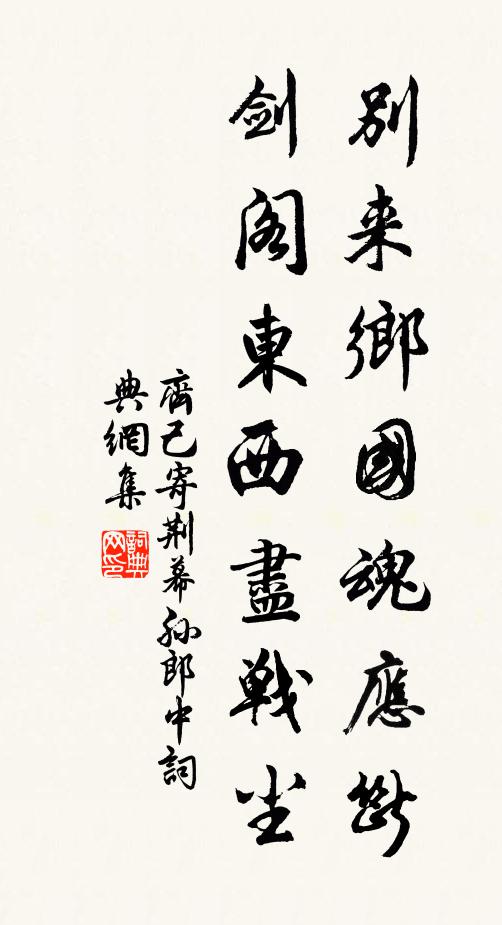 別来鄉國魂應斷
劍閣東西盡戰尘
齊己寄荆幕孙郎中詞
典網集
詞典
网印